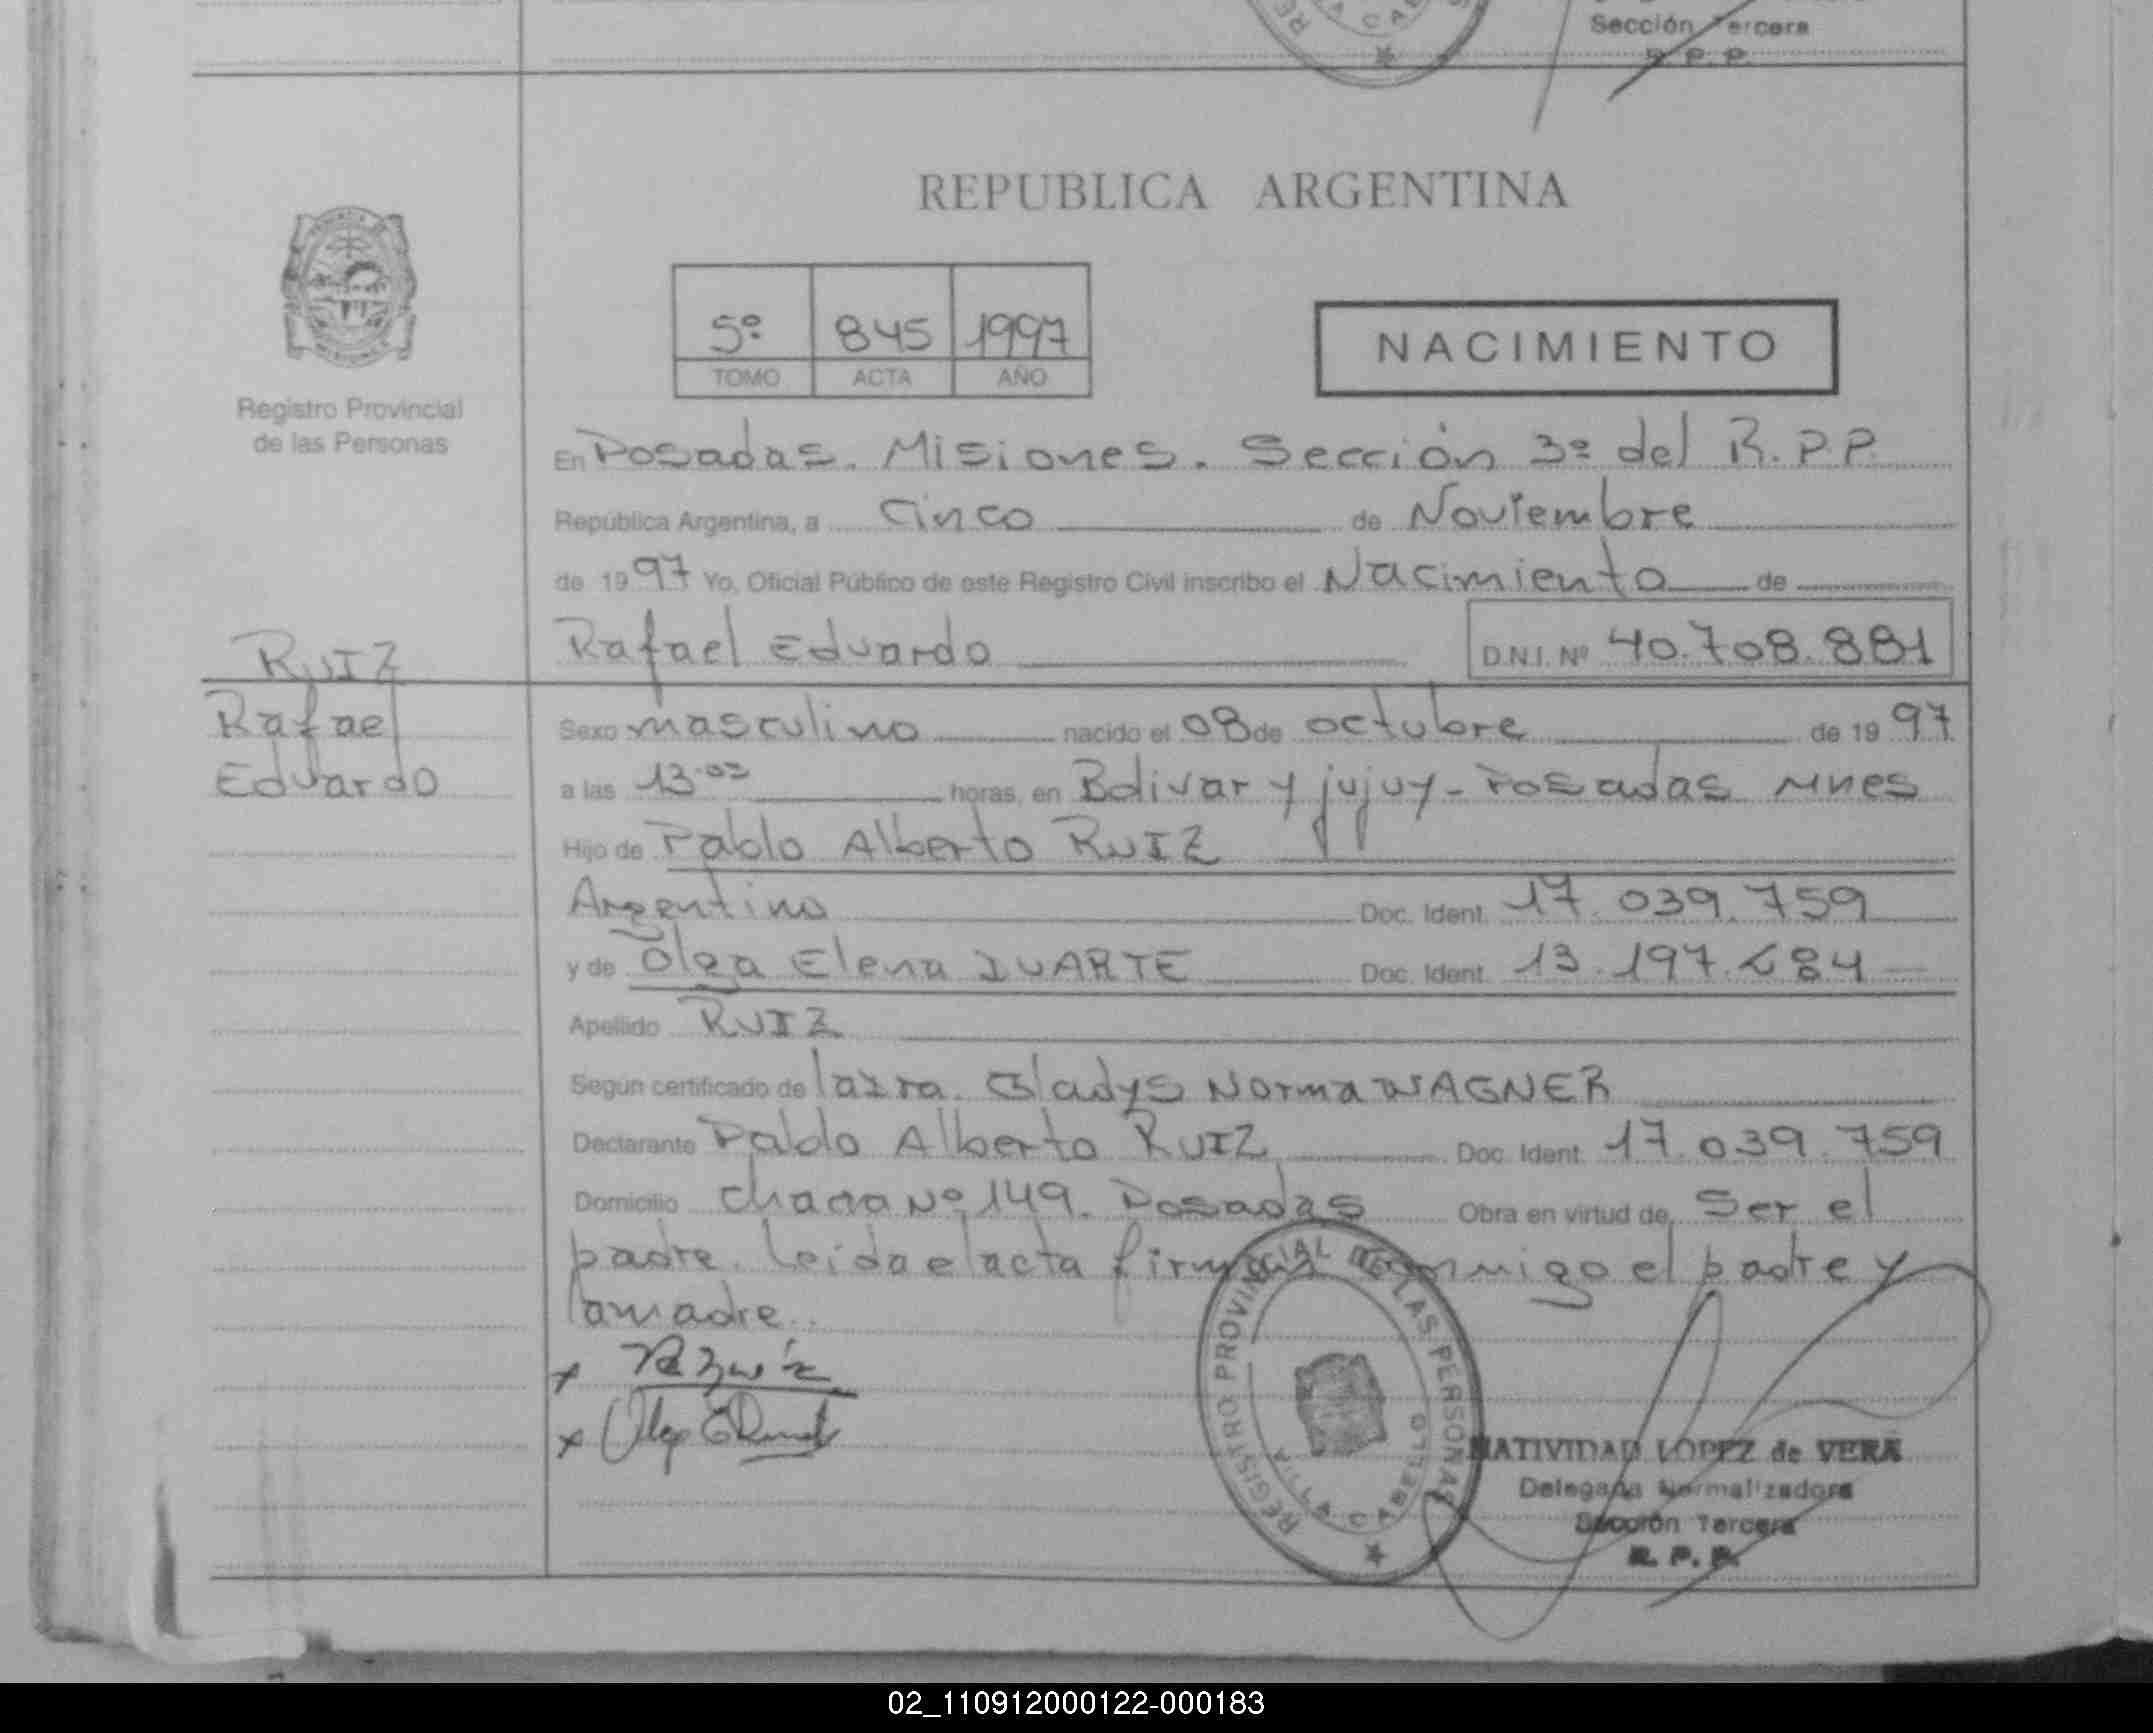 Sección Tercera
R. P. P.
REPUBLICA ARGENTINA
5º 845 1997
TOMO ACTA AÑO
NACIMIENTO
Registro Provincial
de las Personas
En Posadas. Misiones. Sección 3º del R.P.P.
República Argentina, a cinco de Noviembre
de 1997 Yo, Oficial Público de este Registro Civil inscribo el Nacimiento de
Rafael Eduardo D.N.I. Nº 40.708.881
RUIZ
Rafael
Eduardo
Sexo masculino nacido el 08 de octubre de 1997
a las 13.03 horas, en Bolivar y jujuy - Posadas Mnes
Hijo de Pablo Alberto RUIZ
Argentino Doc. Ident. 17.039.759
y de Olga Elena DUARTE Doc. Ident. 13.197.684
Apellido RUIZ
Según certificado de Gladys Norma WAGNER
Declarante Pablo Alberto RUIZ Doc. Ident. 17.039.759
Domicilio chacra Nº 149. Posadas Obra en virtud de ser el
padre. leida el acta firman conmigo el padre y
la madre.
REGISTRO PROVINCIAL DE LAS PERSONAS
VILLA CABELLO
NATIVIDAD LOPEZ de VERA
Delegada Normalizadora
Sección Tercera
R. P. P.
02_110912000122-000183